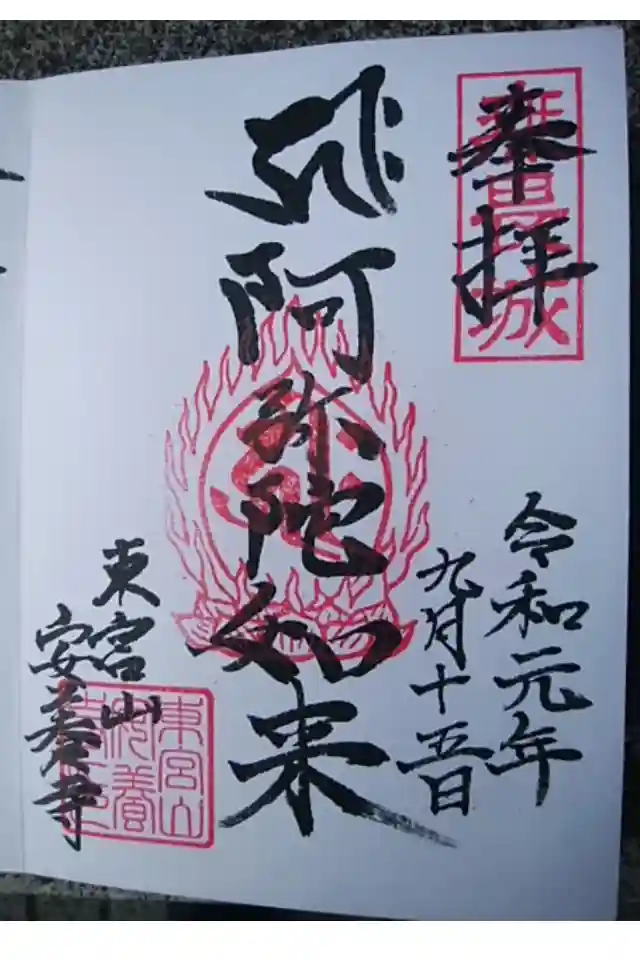 奉拝
令和元年
九月十五日
阿弥陀如来
東宮山
安養寺
東宮山
安養